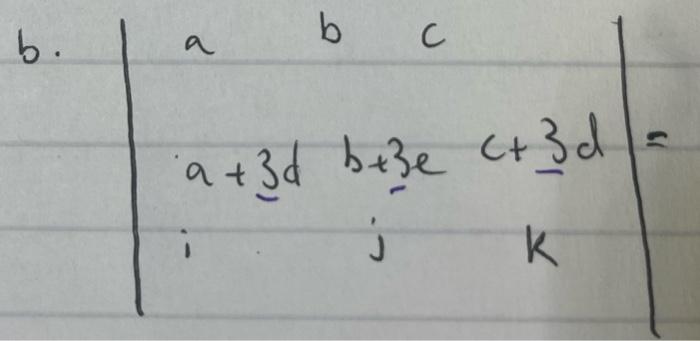 b. | a b c |
| a + 3d b+3e c+3d | =
| i j k |